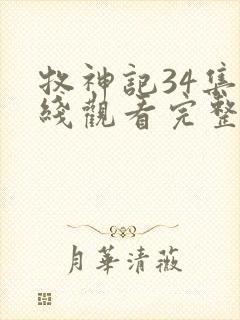 牧神記34集
綫觀看完整
月華清薇